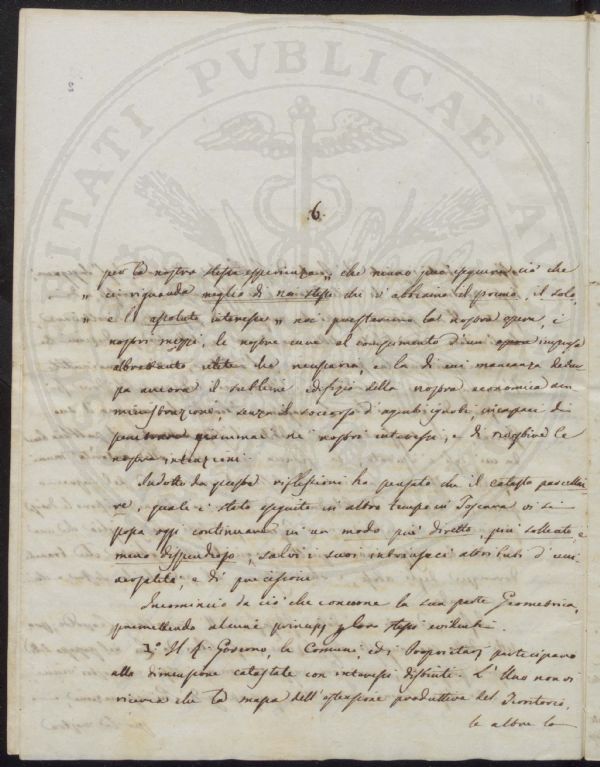 PVBLICAE
6.
per la nostra stessa esperienza, che niuno può eseguire ciò che
„ ci riguarda meglio di noi stessi che v'abbiamo il primo, il solo,
„ e l'assoluto interesse „ noi presteremo la nostra opera, i
nostri mezzi, le nostre cure al compimento d'un opera
altrettanto utile che necessaria, e la di cui mancanza
ancora il sublime edifizio della nostra economica am
ministrazione, senza il soccorso d' incapaci di
penetrare giammai ne' nostri interessi, e di le
nostre intenzioni.
Indotto da queste riflessioni ho pensato che il catasto parcella
re, quale è stato eseguito in altro tempo in Toscana vi si
possa oggi continuare in un modo più diretto, più sollecito e
meno dispendioso, salvi i suoi intrinseci attributi d'uni
versalità, e di precisione
Incomincio da ciò che concerne la sua parte Geometrica,
premettendo alcuni principj per loro stessi evidenti.
1.º Il R. Governo, le Comuni, ed i Proprietarj partecipano
alla dimensione catastale con interessi distinti. L'Uno non vi
ricerca che la massa dell'estensione produttiva del Territorio,
le altre la